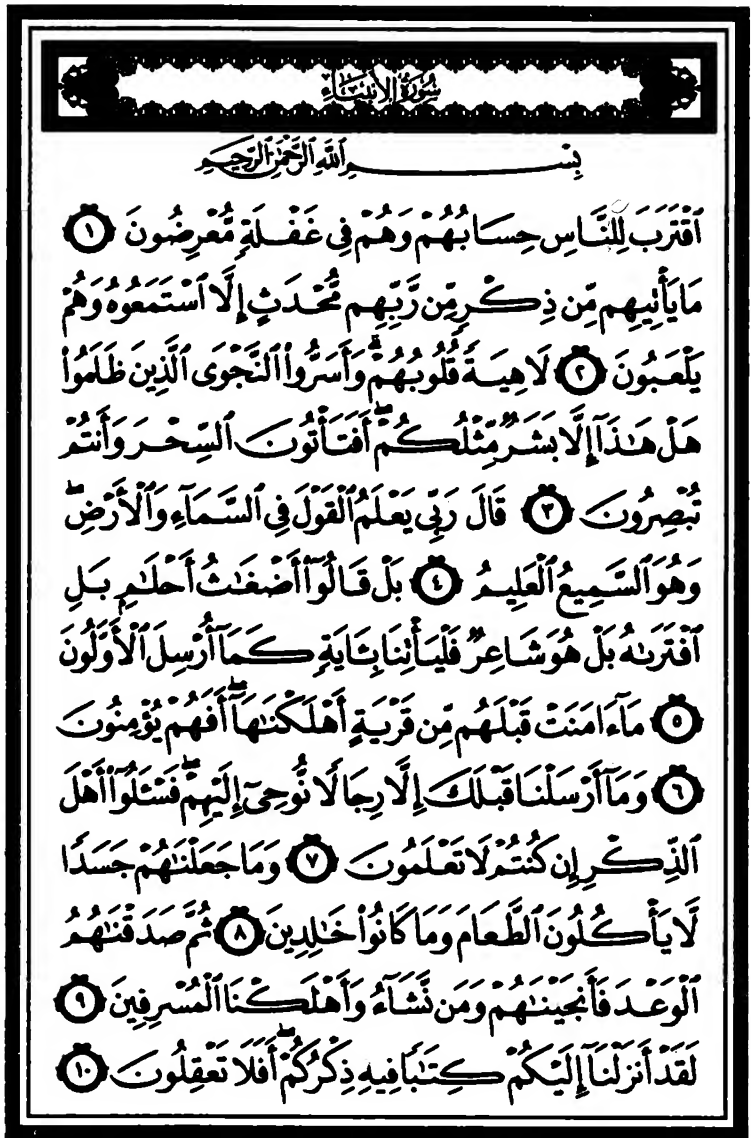 سُورَةُ الأَنبِيَاءِ
بِسْمِ ٱللَّهِ ٱلرَّحْمَٰنِ ٱلرَّحِيمِ
ٱقْتَرَبَ لِلنَّاسِ حِسَابُهُمْ وَهُمْ فِى غَفْلَةٍ مُّعْرِضُونَ ١
مَا يَأْتِيهِم مِّن ذِكْرٍ مِّن رَّبِّهِم مُّحْدَثٍ إِلَّا ٱسْتَمَعُوهُ وَهُمْ
يَلْعَبُونَ ٢ لَاهِيَةً قُلُوبُهُمْ ۗ وَأَسَرُّوا۟ ٱلنَّجْوَى ٱلَّذِينَ ظَلَمُوا۟
هَلْ هَٰذَآ إِلَّا بَشَرٌ مِّثْلُكُمْ ۖ أَفَتَأْتُونَ ٱلسِّحْرَ وَأَنتُمْ
تُبْصِرُونَ ٣ قَالَ رَبِّى يَعْلَمُ ٱلْقَوْلَ فِى ٱلسَّمَآءِ وَٱلْأَرْضِ ۖ
وَهُوَ ٱلسَّمِيعُ ٱلْعَلِيمُ ٤ بَلْ قَالُوٓا۟ أَضْغَٰثُ أَحْلَٰمٍۭ بَلِ
ٱفْتَرَىٰهُ بَلْ هُوَ شَاعِرٌ فَلْيَأْتِنَا بِـَٔايَةٍ كَمَآ أُرْسِلَ ٱلْأَوَّلُونَ
٥ مَآ ءَامَنَتْ قَبْلَهُم مِّن قَرْيَةٍ أَهْلَكْنَٰهَآ ۖ أَفَهُمْ يُؤْمِنُونَ
٦ وَمَآ أَرْسَلْنَا قَبْلَكَ إِلَّا رِجَالًا نُّوحِىٓ إِلَيْهِمْ ۖ فَسْـَٔلُوٓا۟ أَهْلَ
ٱلذِّكْرِ إِن كُنتُمْ لَا تَعْلَمُونَ ٧ وَمَا جَعَلْنَٰهُمْ جَسَدًا
لَّا يَأْكُلُونَ ٱلطَّعَامَ وَمَا كَانُوا۟ خَٰلِدِينَ ٨ ثُمَّ صَدَقْنَٰهُمُ
ٱلْوَعْدَ فَأَنجَيْنَٰهُمْ وَمَن نَّشَآءُ وَأَهْلَكْنَا ٱلْمُسْرِفِينَ ٩
لَقَدْ أَنزَلْنَآ إِلَيْكُمْ كِتَٰبًا فِيهِ ذِكْرُكُمْ ۖ أَفَلَا تَعْقِلُونَ ١٠